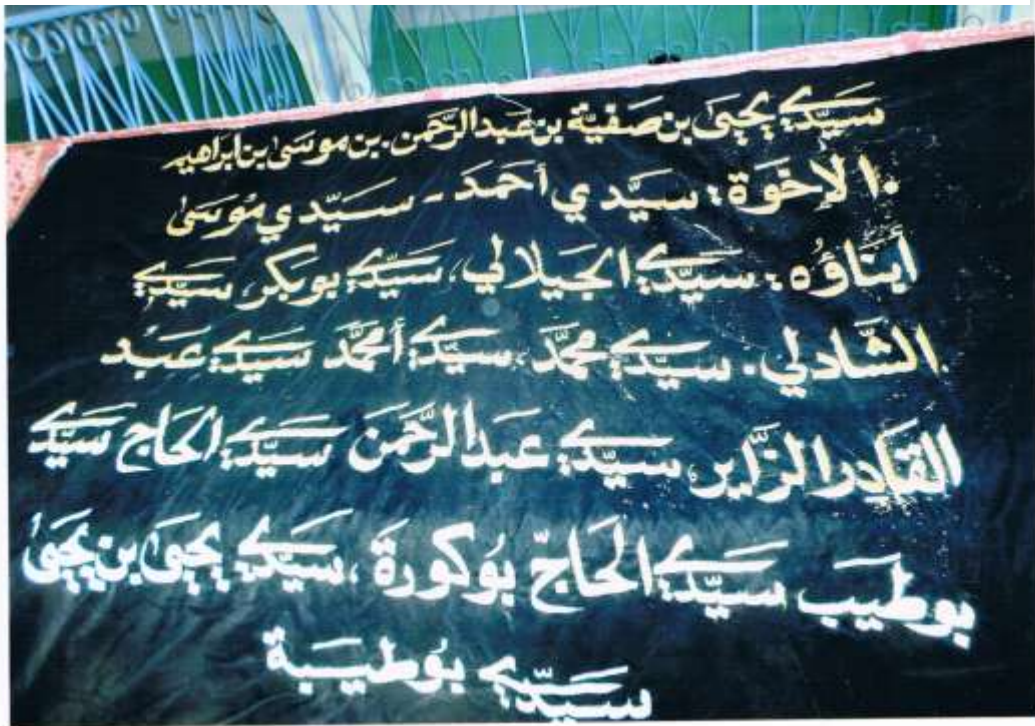 سَيّدي يحيىٰ بن صَفيّة بن عَبدالرَّحمن. بن موسَىٰ بن ابراهيم
.الإخْوة: سَيّدي أحمَد - سَيّدي مُوسَىٰ
أبنَاؤُه: سَيّدي الجيلالي، سَيّدي بوبَكر، سَيّدي
الشّادلي. سيّدي محمَّد، سيّدي أمحَمَّد سَيّدي عَبد
القَادِر الزَّاير، سيّدي عَبدالرَّحمَن سَيّدي الحَاج سَيّدي
بوطيَب سَيّدي الحَاجّ بوكورَة، سَيّدي يحيَىٰ بن يحيَىٰ
سيّدي بوُطيبَة